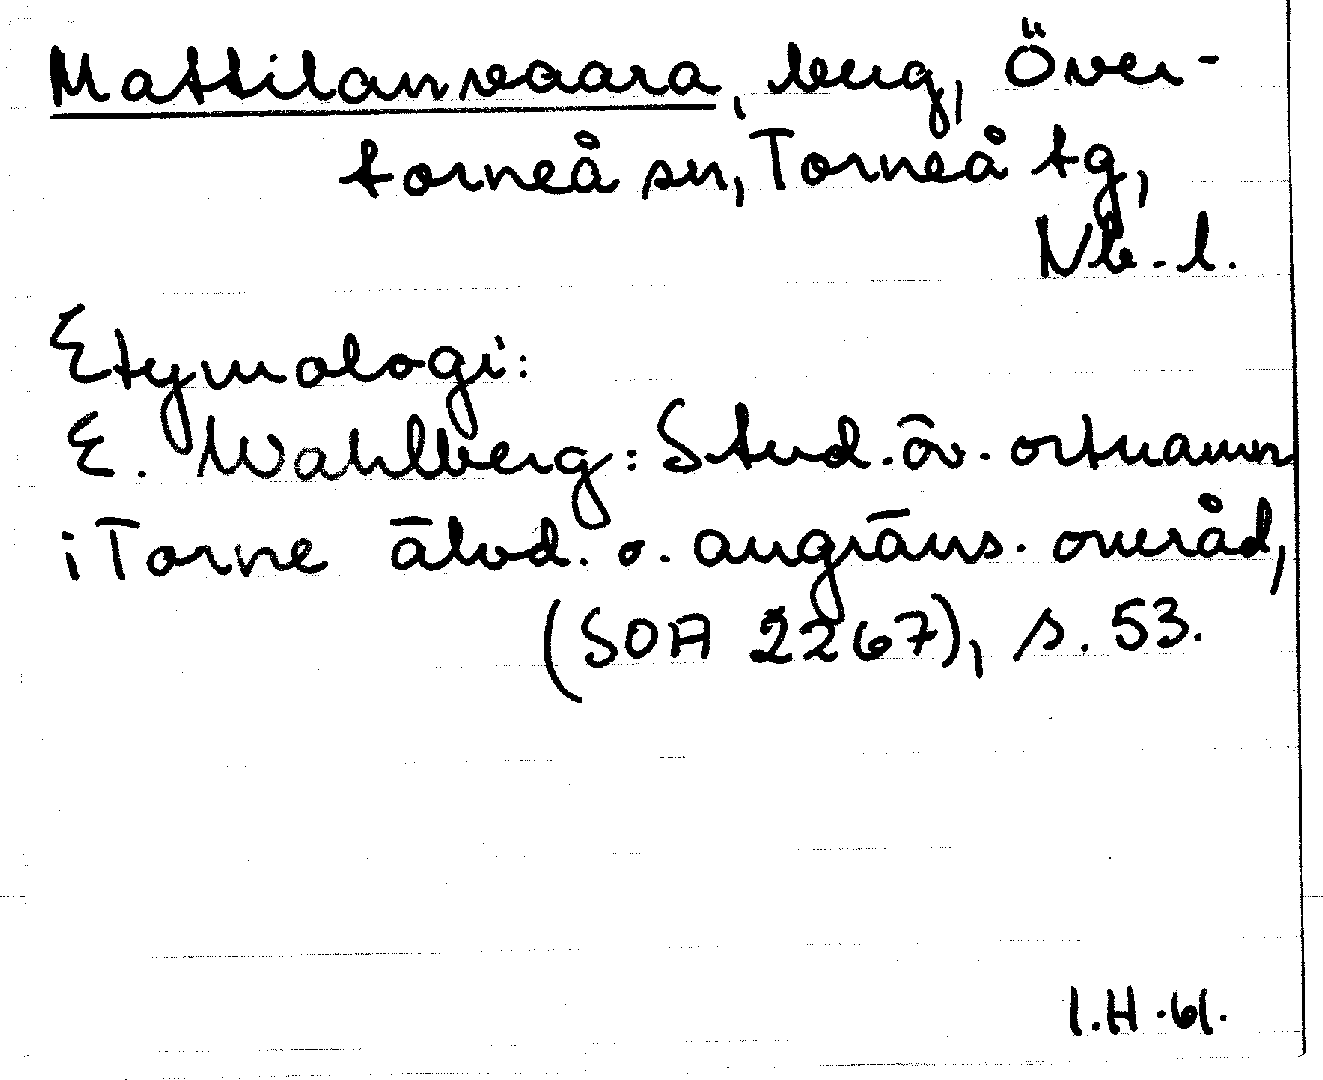 Mattilanvaara, berg, Över-
torneå sn, Torneå tg,
Nb. l.
Etymologi:
E. Wahlberg: Stud. öv. ortnamn
i Torne älvd. o. angräns. område,
(SOA 2267), s. 53.
I.H. 61.